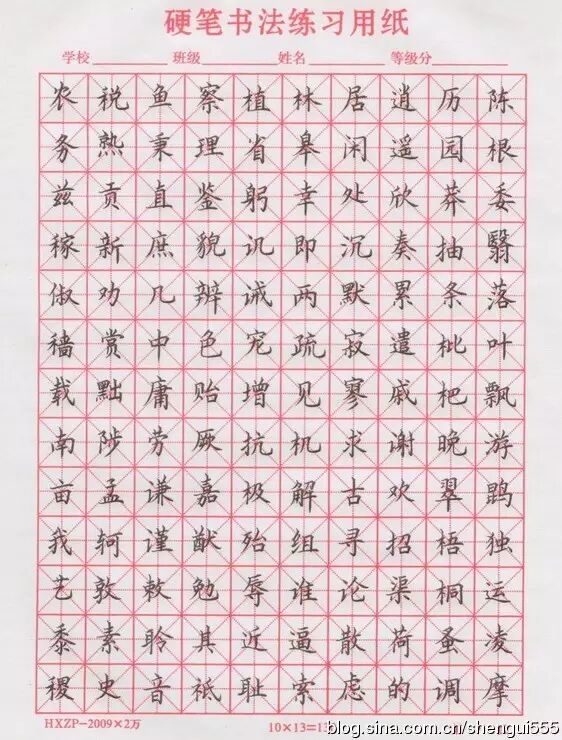 硬笔书法练习用纸
学校 班级 姓名 等级分
农务兹稼俶穑载南亩我艺黍稷
税熟贡新劝赏黜陟孟轲敦素史
鱼秉直庶几中庸劳谦谨敕聆音
察理鉴貌辨色贻厥嘉猷勉其祗
植省躬讥诫宠增抗极殆辱近耻
林皋幸即两疏见机解组谁逼索
居闲处沉默寂寥求古寻论散虑
逍遥欣奏累遣戚谢欢招渠荷的
历园莽抽条枇杷晚翠梧桐蚤调
陈根委翳落叶飘游鹍独运凌摩
HXZP-2009×2万
10×13=13
blog.sina.com.cn/shengui555